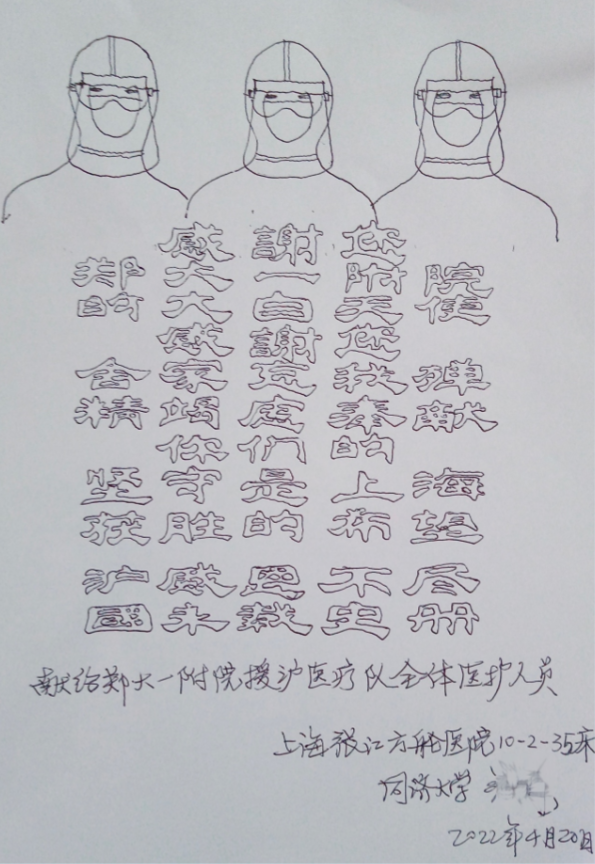 感謝您
郑大一附院
的大白天使
感謝您
舍家殚
精竭虑奉献
你们的
坚守是上海
获胜的希望
沪感恩不尽
國来载史册
献给郑大一附院援沪医疗队全体医护人员
上海张江方舱医院10-2-35床
同济大学
2022年4月20日